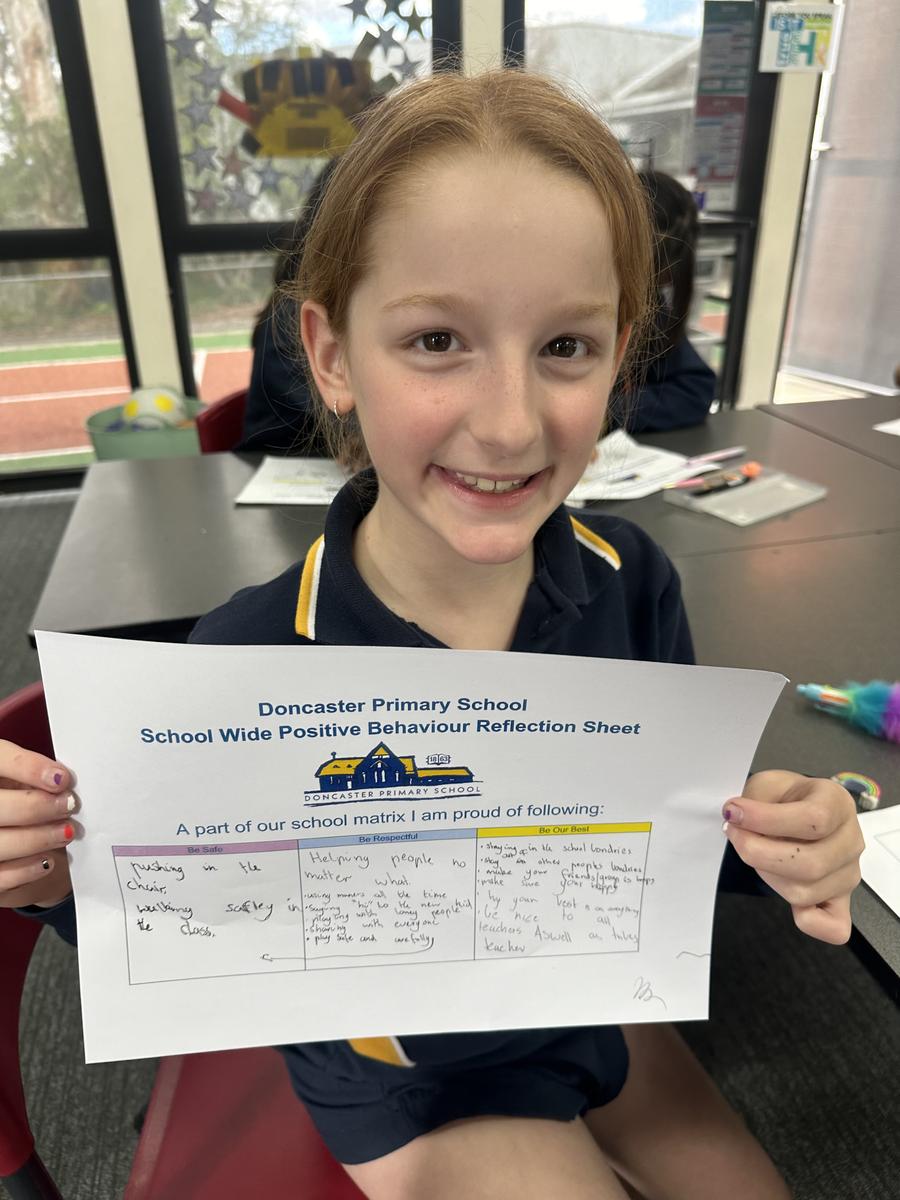 Doncaster Primary School
School Wide Positive Behaviour Reflection Sheet
1863
DONCASTER PRIMARY SCHOOL
A part of our school matrix I am proud of following:
Be Safe
pushing in the
chair,
walking safley in
the class,
Be Respectful
Helping people no
matter what.
• using manners all the time
• saying "hi" to the new kid
• playing with loney people
• sharing with everyone
• play safe and carefully
Be Our Best
• staying in the school bondries
• stay out of other peoples bondries
• make your friends/group is happy
• make sure your happy
try your best is on anything
be nice to all
teachers Aswell as
teacher